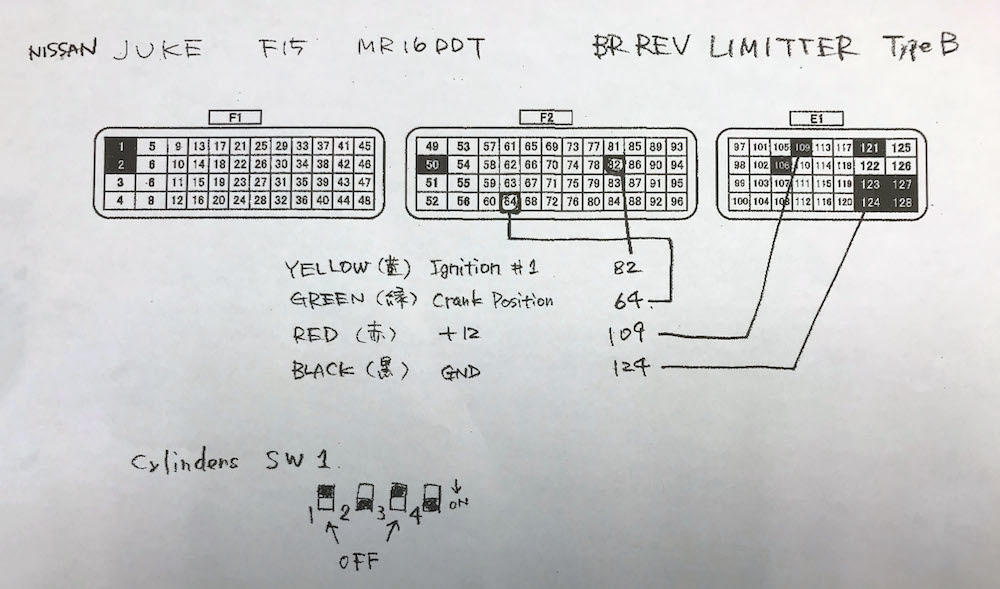 NISSAN JUKE F15 MR16DDT BR REV LIMITTER Type B
F1 F2 E1
1 5 9 13 17 21 25 29 33 37 41 45
2 6 10 14 18 22 26 30 34 38 42 46
3 6 11 15 19 23 27 31 35 39 43 47
4 8 12 16 20 24 28 32 36 40 44 48
49 53 57 61 65 69 73 77 81 85 89 93
50 54 58 62 66 70 74 78 82 86 90 94
51 55 59 63 67 71 75 79 83 87 91 95
52 56 60 64 68 72 76 80 84 88 92 96
97 101 105 109 113 117 121 125
98 102 106 110 114 118 122 126
99 103 107 111 115 119 123 127
100 104 108 112 116 120 124 128
YELLOW (黄) Ignition #1 82
GREEN (緑) Crank Position 64
RED (赤) +12 109
BLACK (黒) GND 124
Cylinders SW 1.
1 2 3 4 ↓ ON
OFF